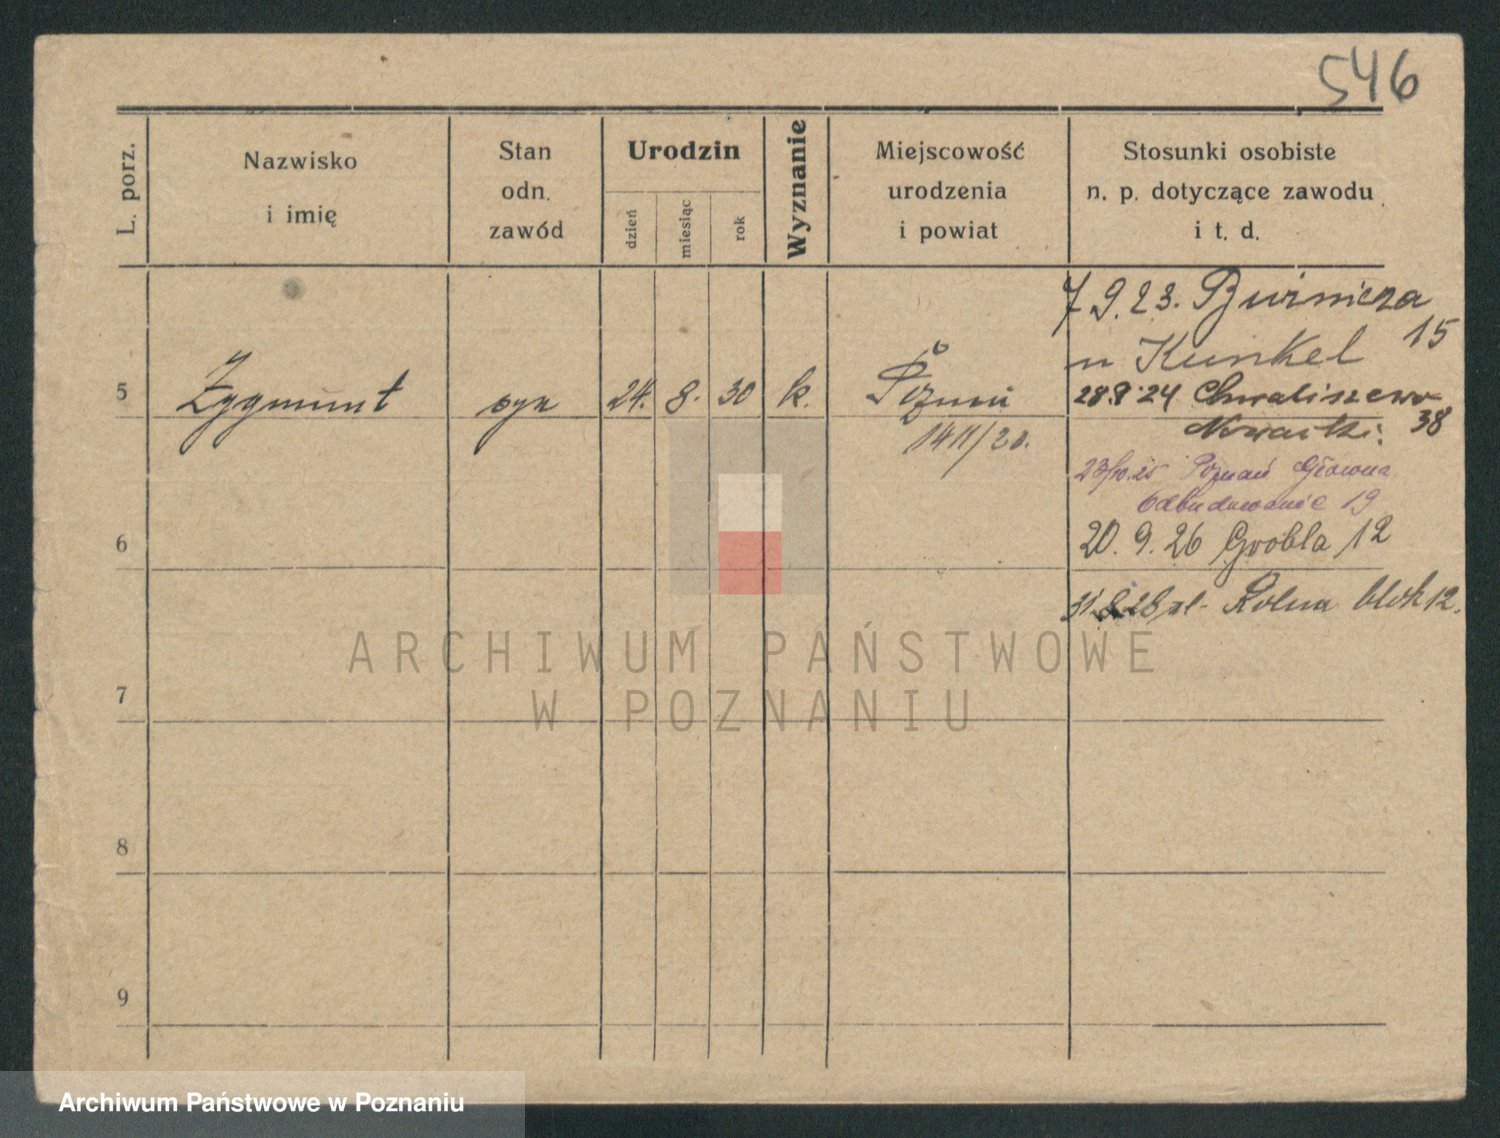 546
L. porz.
Nazwisko
i imię
Stan
odn.
zawód
Urodzin
dzień
miesiąc
rok
Wyznanie
Miejscowość
urodzenia
i powiat
Stosunki osobiste
n. p. dotyczące zawodu
i t. d.
7.9.23.
15
u Kunkel
5 Zygmunt syn 24. 8. 30 k.
28.8.24 Chwaliszewo
38
1411/20.
Poznań Główna
Odbudowanie 19
6
20. 9. 26 Grobla 12
Rolna blok 12.
ARCHIWUM PAŃSTWOWE
W POZNANIU
7
8
9
Archiwum Państwowe w Poznaniu